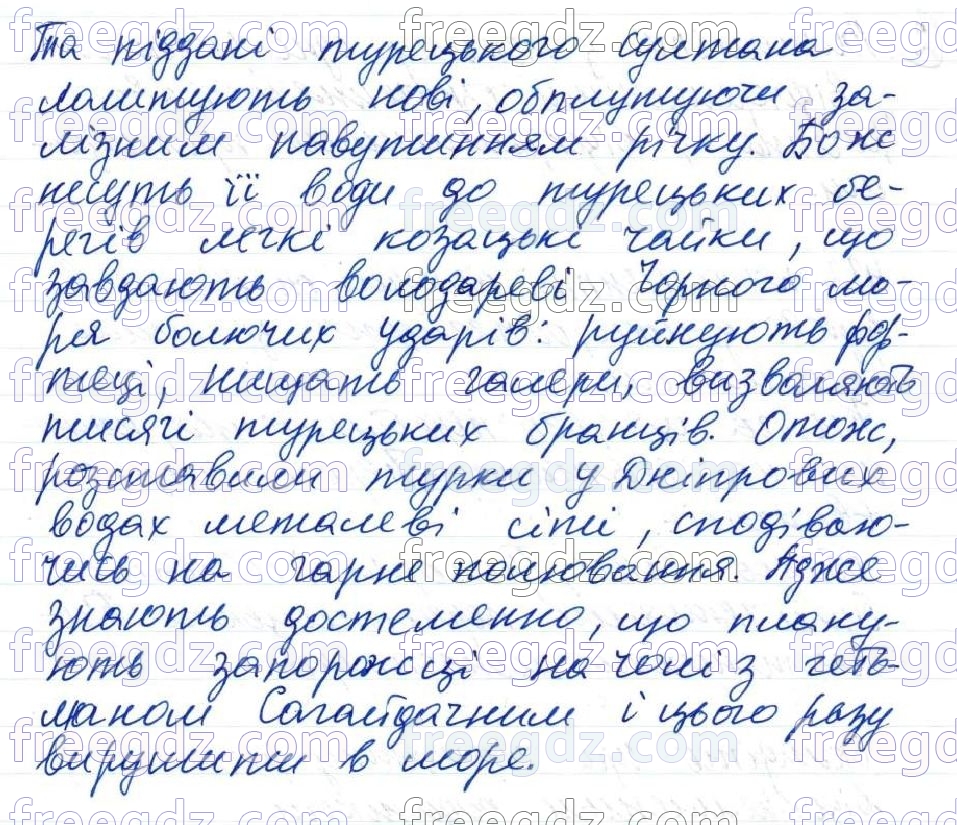 Та піддані турецького султана
лаштують нові, обплутуючи за-
лізним павутинням річку. Бо ж
несуть її води до турецьких бе-
регів легкі козацькі чайки, що
завдають володареві Чорного мо-
ря болючих ударів: руйнують фор-
теці, нищать галери, визваляють
тисячі турецьких бранців. Отож,
розставили турки у Дніпрових
водах металеві сіті, сподіваю-
чись на гарне полювання. Адже
знають достеменно, що плану-
ють запорожці на чолі з геть-
маном Сагайдачним і цього разу
вирушити в море.
freegdz.com